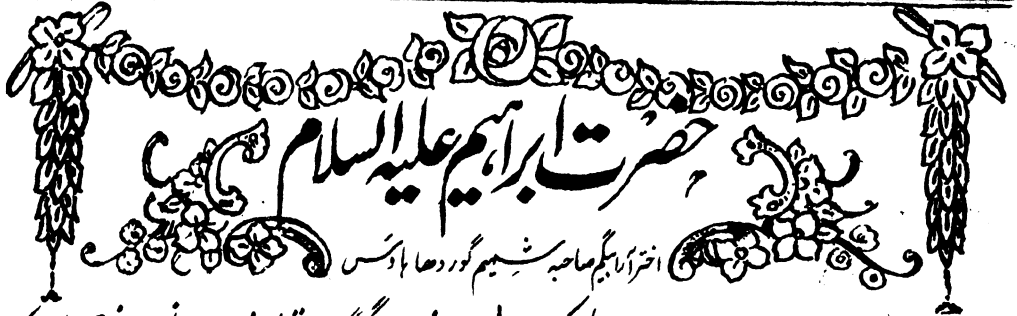 حضرت ابراہیم علیہ السلام
اختر آرا بیگم صاحبہ شمیم گوردھا ہاؤس